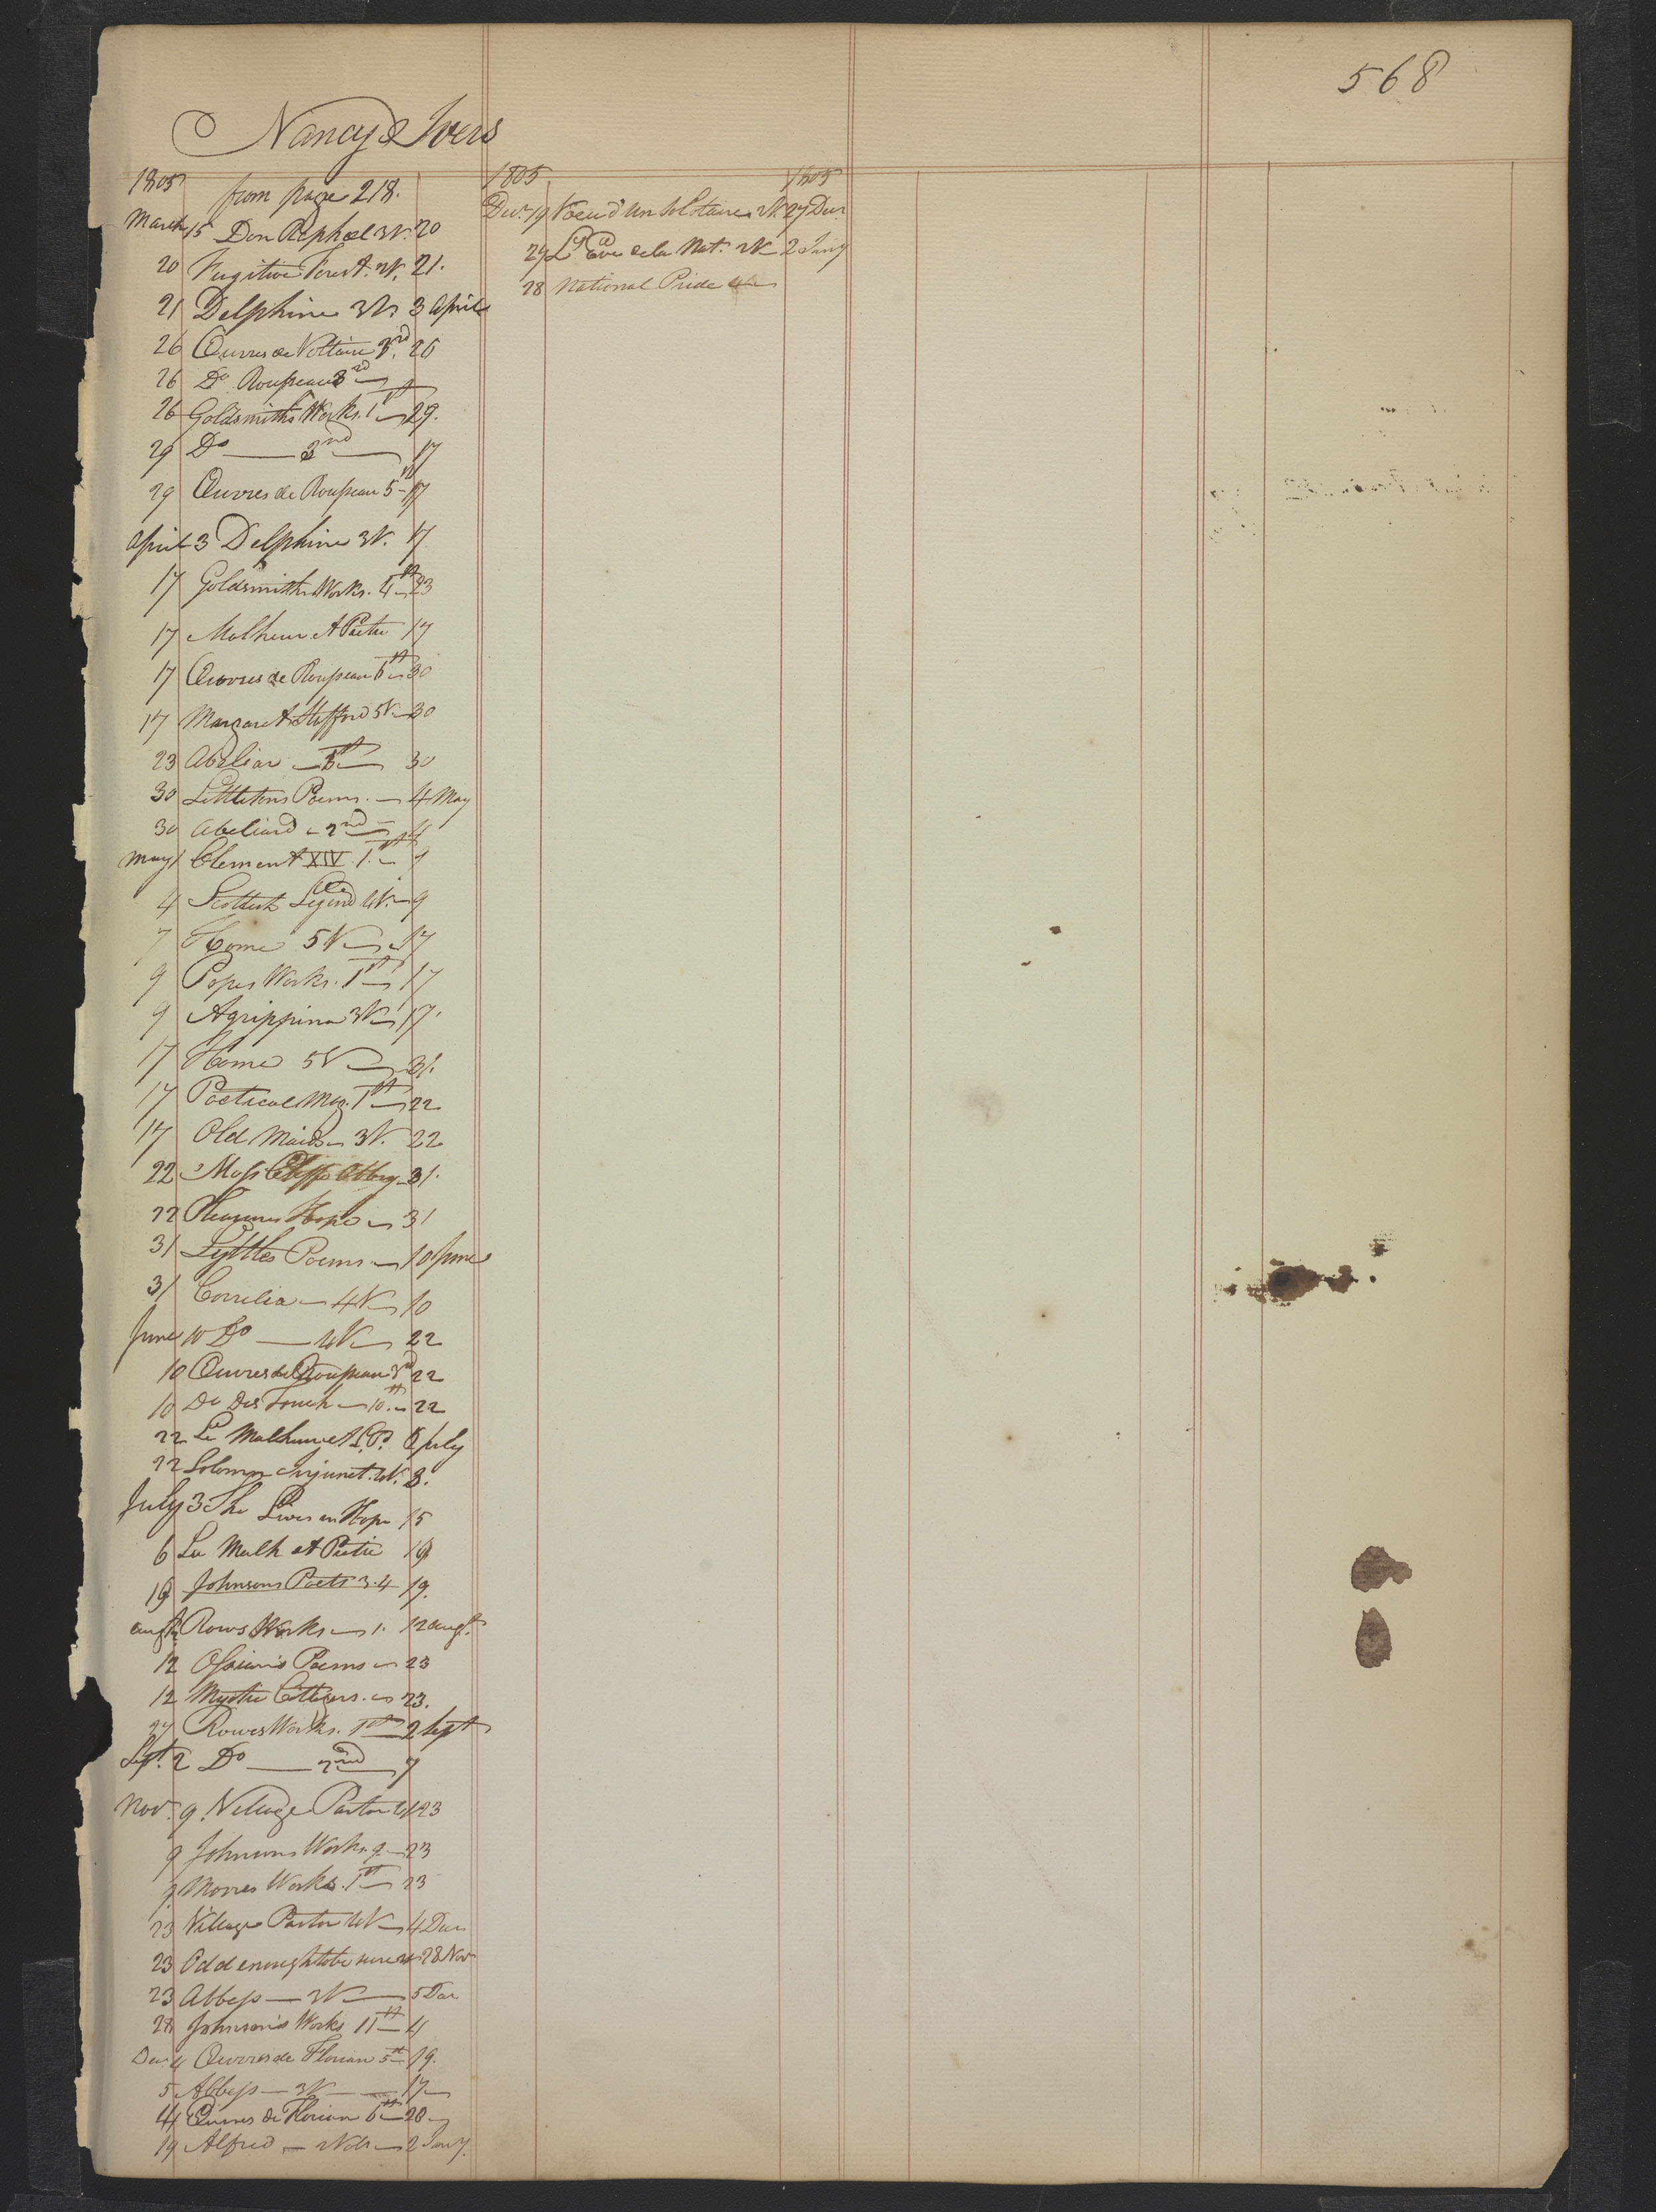 568
Nancy Ivers
1805 from page 218.
March 15 Don Raphael 3V. 20
20 Fugitive Forest. 2V. 21.
21 Delphine 3Vs 3 April
26 Œuvres de Voltaire 26
26 Do. Rousseau 3rd
26 Goldsmiths Works. 1st 29.
29 Do — 3nd — 17
29 Œuvres de Rousseau 5 17
April 3 Delphine 3V. 17
17 Goldsmiths Works. 4th 23
17 Malheur et Pitie 17
17 Œuvres de Rousseau 6th 30
17 Margaret Stafford 5V 30
23 Abeliar — 30
30 Littletons Poems. — 4 May
30 Abeliard — 2nd — 4
May 1 Clement XIV. 1st
4 Scottish Legend 4V. 9
7 Home 5V 17
9 Popes Works. 1st 17
9 Agrippina 3V 17.
17 Home 5V 31.
17 Poetical Mag. 1st 22
17 Old Maids 3V. 22
22 Moss Cliff Abbey 31.
22 Pleasures Hope 31
31 Lyttles Poems — 10 June
31 Correlia — 4V 10
June 10 Do — 4V 22
10 Œuvres de Rousseau 22
10 Do Des Touch — 10th 22
22 Le Malheur et L. P. 6 July
22 Solemn Injunct. 4V. 3.
July 3 She Lives in Hope 15
6 La Malh et Pitie 19
19 Johnsons Poets 3.4 19.
Augt Rows Works — 1. 12 Augt.
12 Ossians Poems 23
12 Mystic Cottagers. 23.
27 Rowes Works. 1st 2 Sept
Sept. 2 Do — 2nd 7
Nov. 9. Village Pastor 23
9 Johnsons Works 9 — 23
9 Mores Works. 1st 23
23 Village Pastor 4V 4 Dec
23 Odd enough to be sure 28 Nov
23 Abbess — 3V — 5 Dec
28 Johnson's Works 11th 4
Dec 4 Œuvres de Florian 5th 19.
5 Abbess — 3V — 17
4 Œuvres de Florian 6th 20
19 Alfred — 2Vols — 2 Jany.
1805 1805
Dec. 19 Voeu d'un Solitaire 2V. 27 Dec.
27 2V 2 Jany
28 National Pride